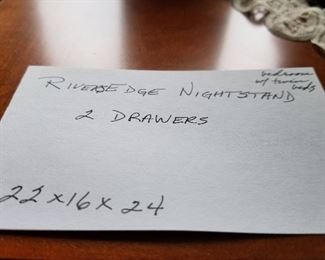 bedroom
w/ twin
beds
RIVERSEDGE NIGHTSTAND
2 DRAWERS
22 x 16 x 24